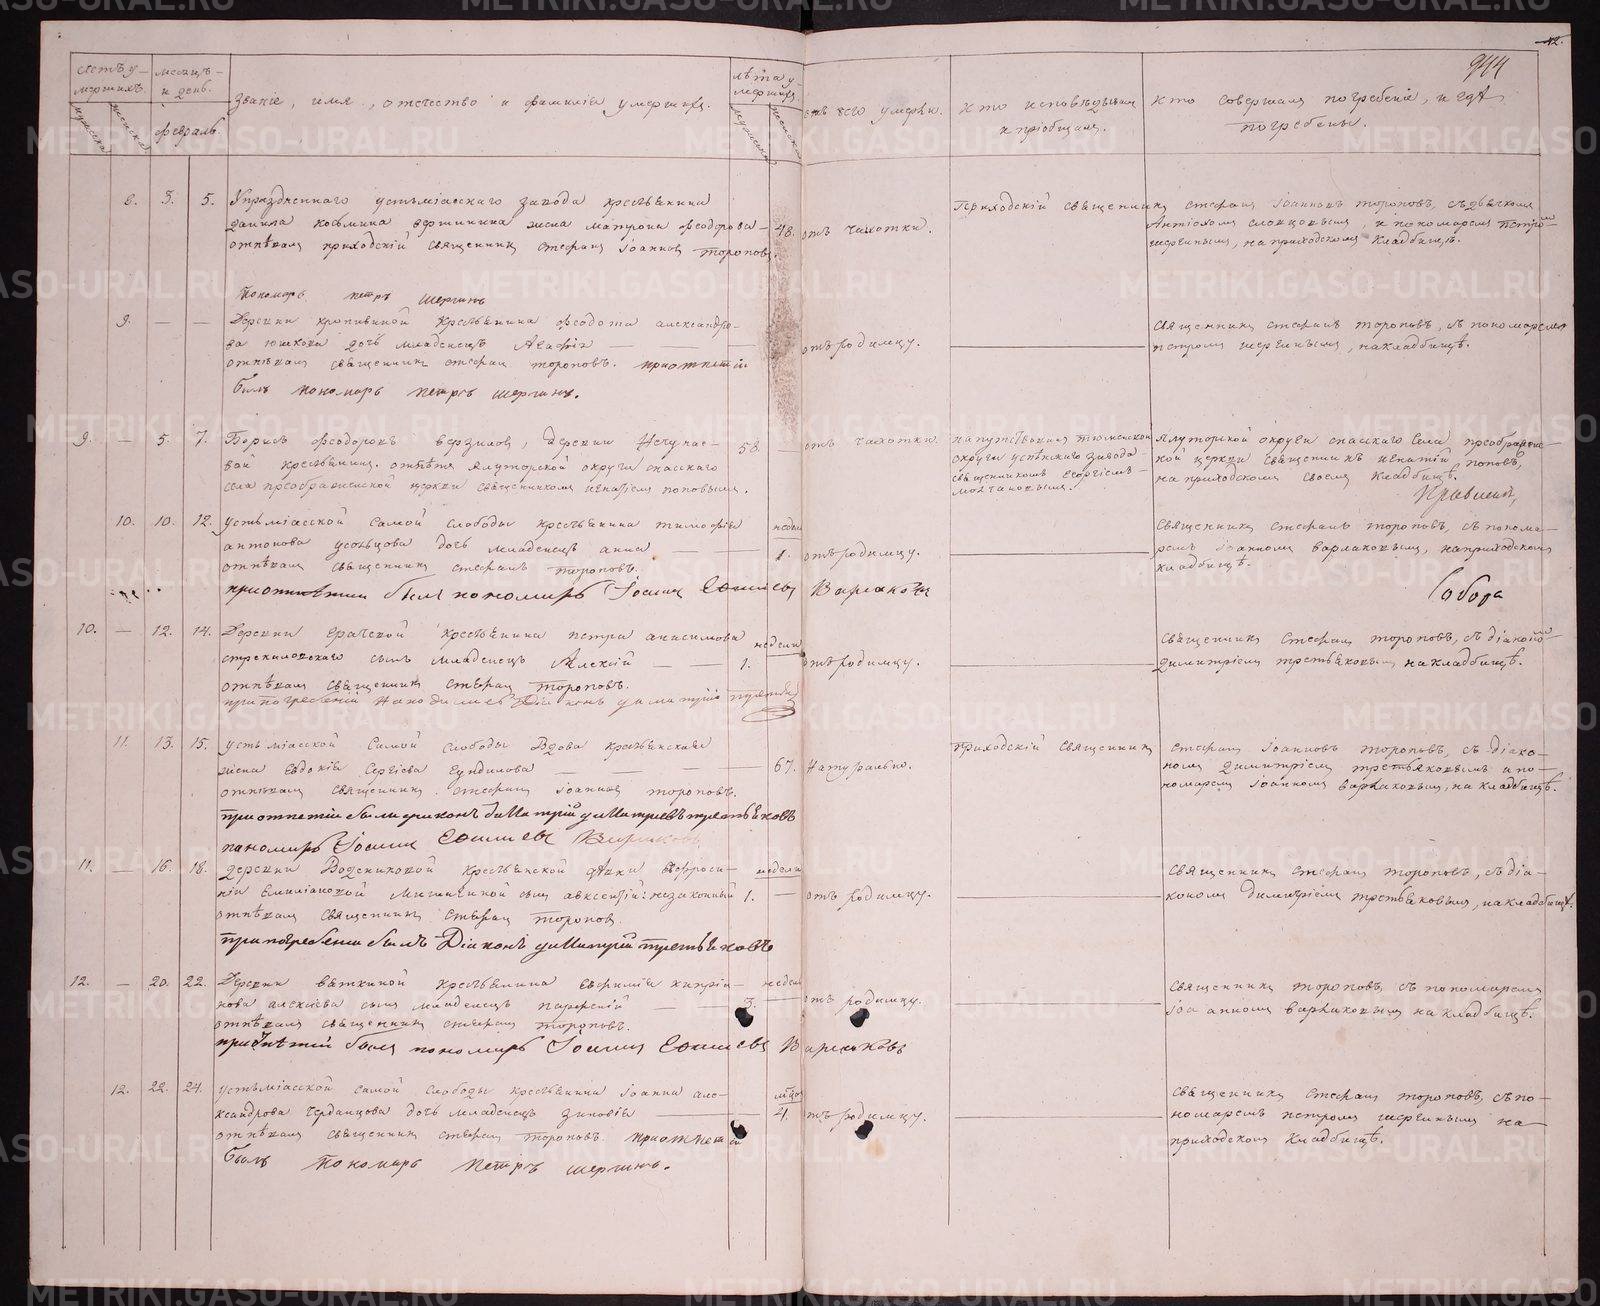 42.
944
Счетъ у-
мершихъ.
мужеска
женска
месяцъ
и день.
февраль.
Званіе, имя, отечество и фамилія умершихъ.
лѣта у
мершихъ
мужеска
женска
отъ чего умерли.
кто исповѣдывалъ
и пріобщалъ.
кто совершалъ погребеніе, и гдѣ
погребены.
8. 3. 5. Упраздненнаго устьміасскаго завода крестьянина
Данила Козьмина жена Матрона Феодорова — 48. отъ чахотки.
отпѣвалъ приходскій священникъ Стефанъ Іоанновъ Тороповъ.
Пономарь Петръ Шергинъ
Приходскій священникъ Стефанъ Іоанновъ Тороповъ, съ дьячкомъ
и пономаремъ Петромъ
Шергинымъ, на приходскомъ кладбищѣ.
9. — — Деревни крестьянина Феодота Александро-
ва Юшкова дочь младенецъ Агафія — отъ родимцу.
отпѣвалъ священникъ Стефанъ Тороповъ. при отпетіи
былъ пономарь Петръ Шергинъ.
Священникъ Стефанъ Тороповъ, съ пономаремъ
Петромъ Шергинымъ, на кладбищѣ.
9. — 5. 7. Борисъ Феодоровъ Верзиловъ, деревни
крестьянинъ. отпѣтъ Ялуторской округи Спасскаго
села Преображенской церкви священникомъ Игнатіемъ Поповымъ.
58. — отъ чахотки.
напутствованъ Тюменской
округи Успенскаго завода
священникомъ Георгіемъ
Ялуторской округи Спасскаго села Преображенс-
кой церкви священникъ Игнатій Поповъ,
на приходскомъ своемъ кладбищѣ.
10. 10. 12. Устьміасской самой слободы крестьянина Тимофѣя
Антонова Усольцова дочь младенецъ Анна — недели 1. отъ родимцу.
отпѣвалъ священникъ Стефанъ Тороповъ.
при отпѣтіи былъ пономарь Іоаннъ Варлаковъ
Священникъ Стефанъ Тороповъ, съ понома-
ремъ Іоанномъ Варлаковымъ, на приходскомъ
кладбищѣ.
Собора
10. — 12. 14. Деревни Грачевой крестьянина Петра Анисимова
сынъ младенецъ Алексій — недели 1. отъ родимцу.
отпѣвалъ священникъ Стефанъ Тороповъ.
при погребеніи находился Діаконъ Димитрій
Священникъ Стефанъ Тороповъ, съ діакономъ
Димитріемъ Третьяковымъ на кладбищѣ.
11. 13. 15. Устьміасской самой слободы вдова крестьянская
жена Евдокія Сергіева — 67. Натурально.
отпѣвалъ священникъ Стефанъ Іоанновъ Тороповъ.
при отпетіи были діаконъ Димитрій Димитріевъ Третьяковъ
пономарь Іоаннъ Варлаковъ.
Приходскій священникъ Стефанъ Іоанновъ Тороповъ, съ діако-
номъ Димитріемъ Третьяковымъ и по-
номаремъ Іоанномъ Варлаковымъ, на кладбищѣ.
11. — 16. 18. Деревни крестьянской дѣвки Евфроси-
ніи сынъ Авксентій: незаконный недели 1. — отъ родимцу.
отпѣвалъ священникъ Стефанъ Тороповъ.
при погребеніи былъ Діаконъ Димитрій Третьяковъ
Священникъ Стефанъ Тороповъ, съ діа-
кономъ Димитріемъ Третьяковымъ, на кладбищѣ.
12. — 20. 22. Деревни Вяткиной крестьянина Евфимія Кипріа-
нова Алексіева сынъ младенецъ Парфеній — недели 3. отъ родимцу.
отпѣвалъ священникъ Стефанъ Тороповъ.
при отпѣтіи былъ пономарь Іоаннъ Варлаковъ
Священникъ Тороповъ, съ пономаремъ
Іоанномъ Варлаковымъ на кладбищѣ.
12. 22. 24. Устьміасской самой слободы крестьянина Іоанна Але-
ксандрова Черданцова дочь младенецъ Зиновія — 4. отъ родимцу.
отпѣвалъ священникъ Стефанъ Тороповъ. при отпетіи
былъ пономарь Петръ Шергинъ.
Священникъ Стефанъ Тороповъ, съ по-
номаремъ Петромъ Шергинымъ на
приходскомъ кладбищѣ.
METRIKI.GASO-URAL.RU